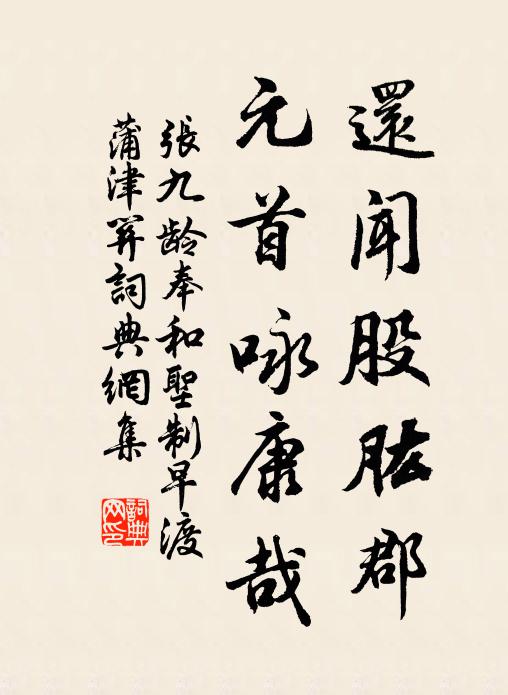 還闻股肱郡
元首咏康哉
張九龄奉和聖制早渡
蒲津関詞典網集
詞典
网印